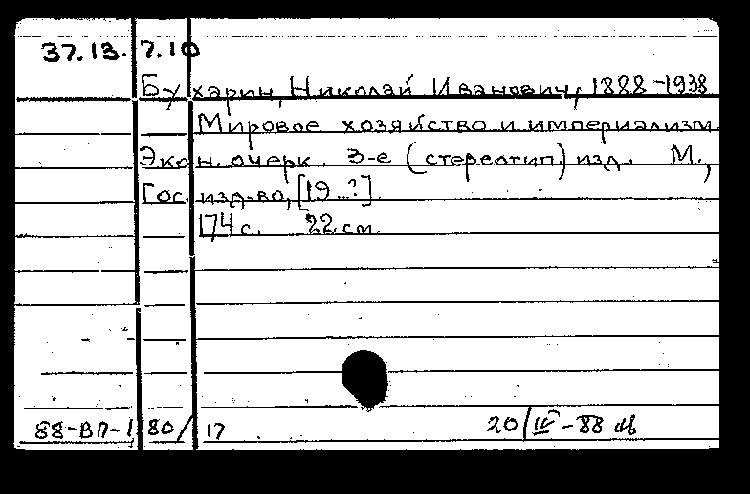 37.13. 7.10
Бухарин, Николай Иванович, 1888-1938
Мировое хозяйство и империализм.
Экон. очерк. 3-е (стереотип.) изд. М.,
Гос. изд-во, [19..?].
174 с. 22 см.
88-ВП-1180/17 20/IV-88